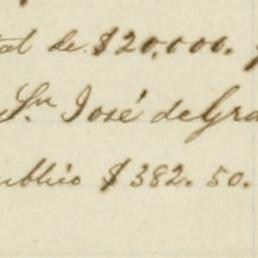 tal de $20,000.
Sr. José de Gra
ublico $382.50.